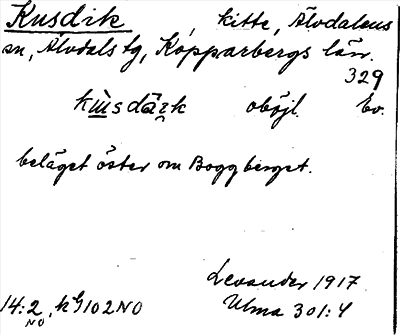 Kusdik kitte, Älvdalens
sn, Älvdals tg, Kopparbergs län.
329
oböjl. bo.
beläget öster om Boggberget.
Levander 1917
14:2 NO, kG102NO Ulma 301:4